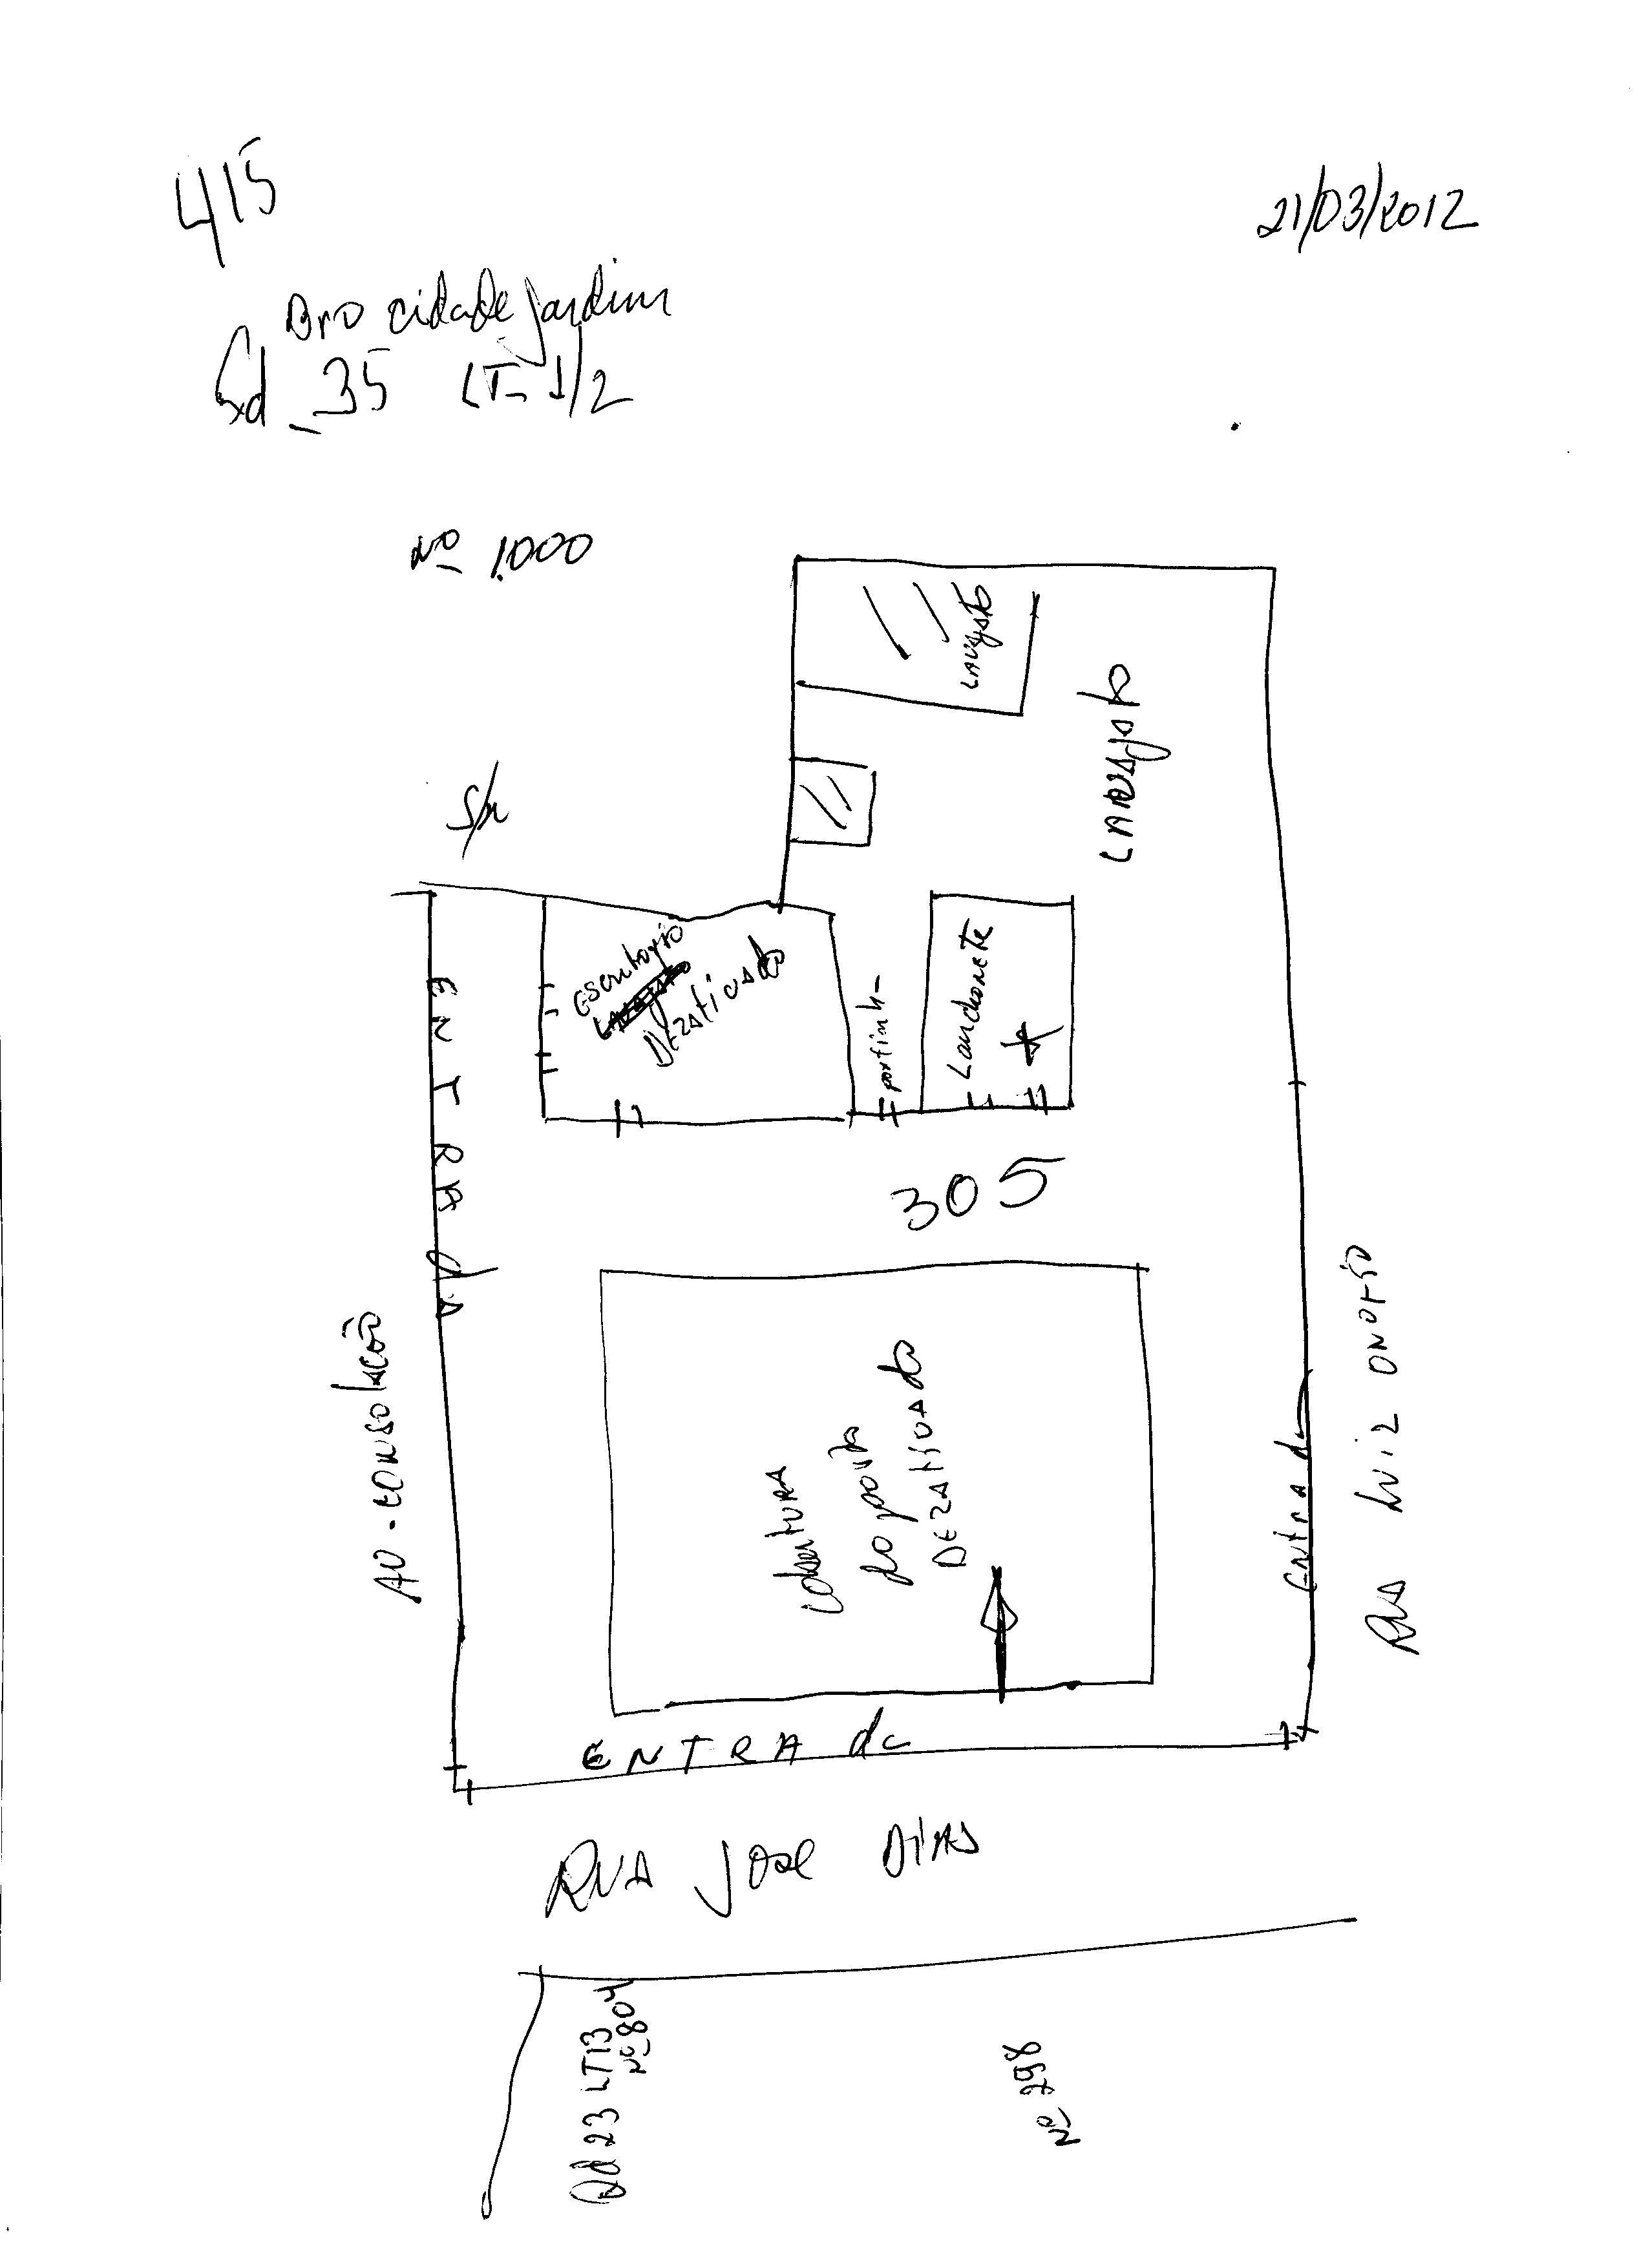 415
21/03/2012
Bro cidade Jardim
Qd_35 LT- 1/2
Nº 1.000
LAVAJATO
LAVAJATO
S/N
Escritorio
DEZATIVADO
portinh-
Lanchonete
ENTRADA
305
AV. CONSOLACÃO
Cobertura
do posto
DEZATIVADO
Entrada
RUA LUIZ ONORIO
ENTRADA
RUA JOSE DIAS
Qd 23 LT13
Nº 804
Nº 298